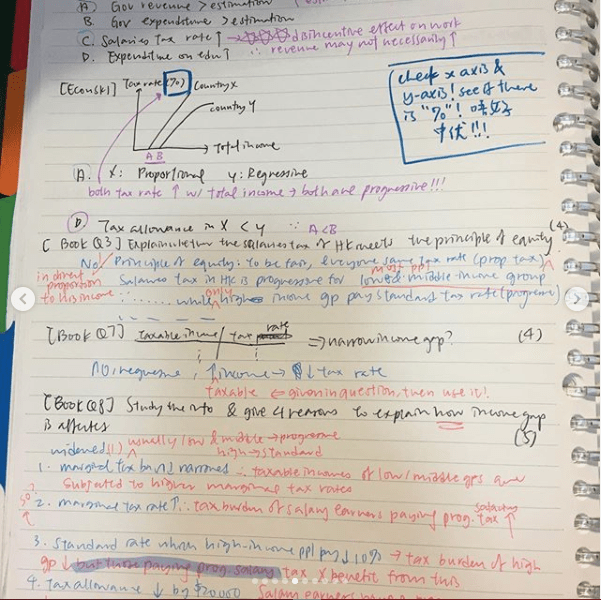 A) Gov revenue > estimation
B. Gov expenditure > estimation
C. Salaries Tax rate ↑ → disincentive effect on work
D. Expenditure on edu↑ ∴ revenue may not necessarily ↑
[Econsk1] Tax rate (%) Country X
country Y
Total income
A B
check x axis &
y-axis! see if there
is "%"! 唔好
中伏!!!
A. X: Proportional Y: Regressive
both tax rate ↑ w/ total income → both are progressive!!!
D. Tax allowance in X < Y ∵ A<B
(4)
[Book Q3] Explain whether the salaries tax of HK meets the principle of equity
No! Principle of equity: to be fair, everyone same tax rate (prop tax)
in direct proportion to his income
most ppl
Salaries tax in HK is progressive for lower & middle-income group
while only high income gp pay standard tax rate (progressive)
[Book Q7] taxable income / tax rate ⇒ narrow income gap? (4)
No, regressive, ↑income → ↓ tax rate
taxable ← given in question, then use it!
[Book Q8] Study the info & give 4 reasons to explain how income gap
is affected (5)
widened (1) usually low & middle → progressive
high → standard
1. marginal tax band narrowed ∴ taxable incomes of low/middle gps are
subjected to higher marginal tax rates
so?
2. marginal tax rate ↑ ∴ tax burden of salary earners paying prog. salaries tax ↑
3. Standard rate which high-income ppl pay ↓ 10% → tax burden of high
gp ↓ but those paying prog. salary tax X benefit from this
4. Tax allowance ↓ by $20000